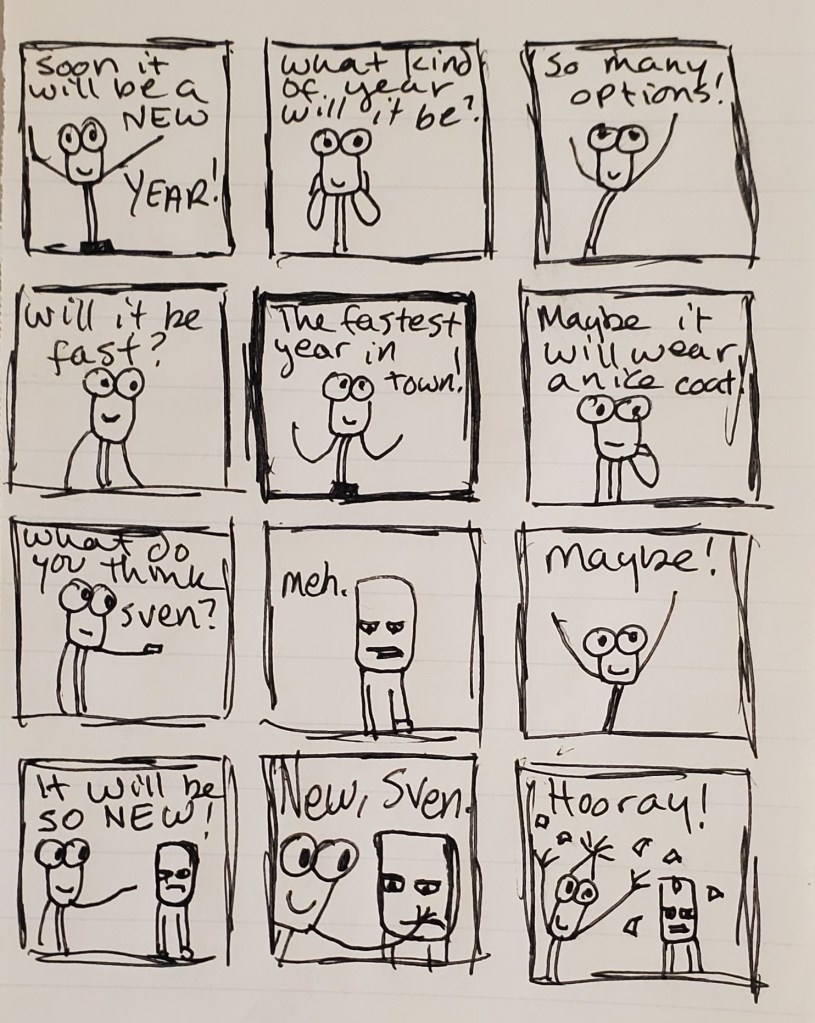 Soon it
will be a
NEW
YEAR!
What kind
of year
will it be?
So many
options!
Will it be
fast?
The fastest
year in
town!
Maybe it
will wear
a nice coat!
What do
you think
Sven?
meh.
Maybe!
It will be
SO NEW!
New, Sven.
Hooray!